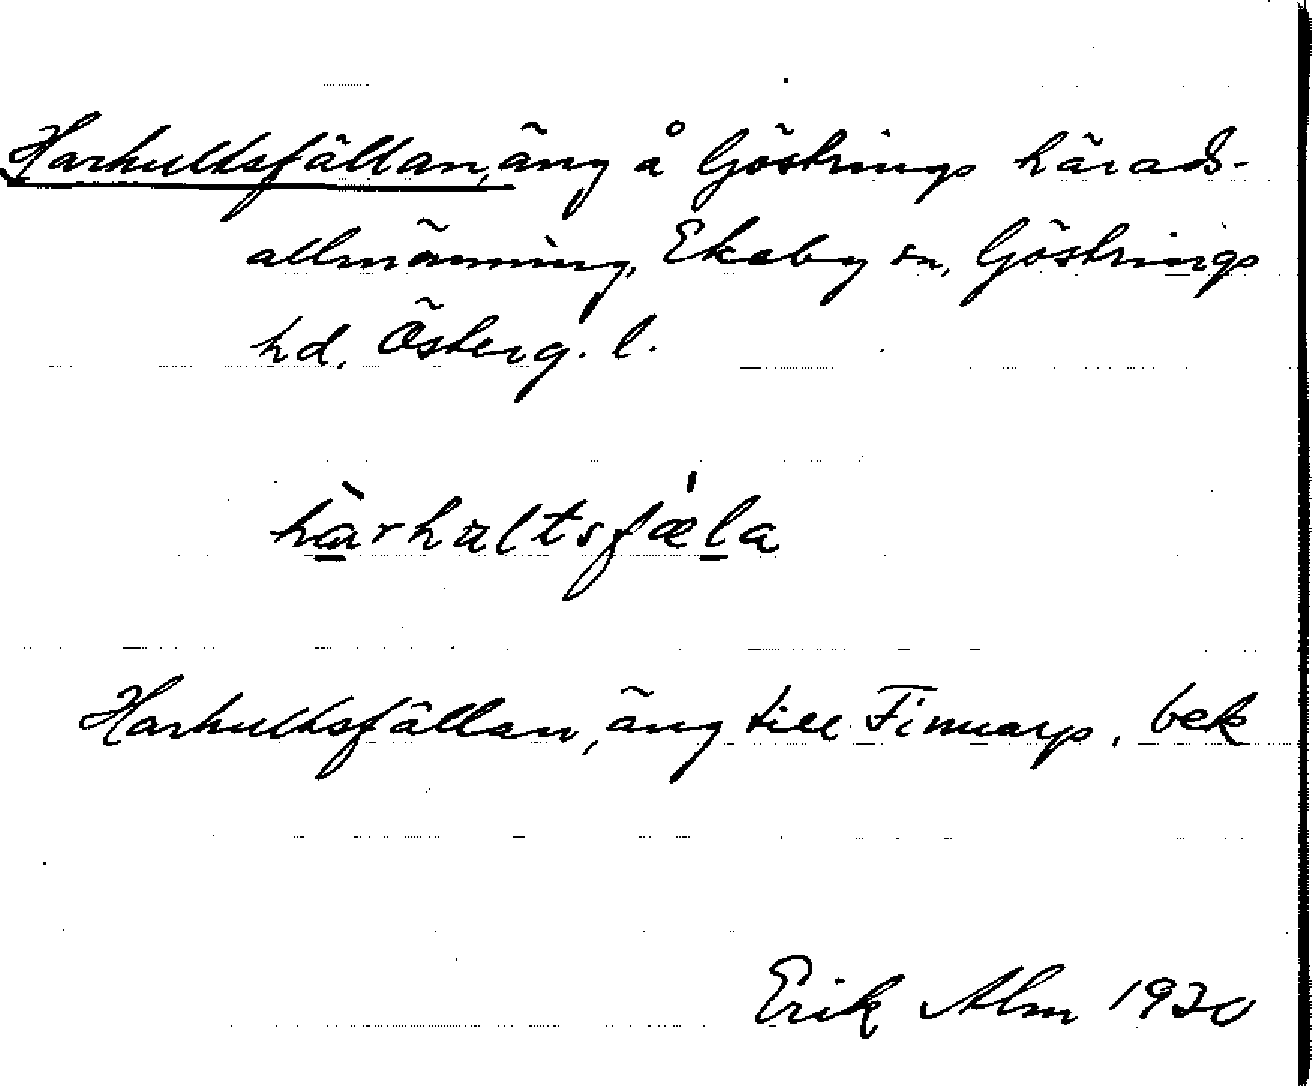 Harhultsfällan, äng å Göstrings härads-
allmänning, Ekeby sn, Göstrings
hd, Österg. l.
hàrhultsfæ̍la
Harhultsfällan, äng till Finnarp, bek
Erik Alm 1930